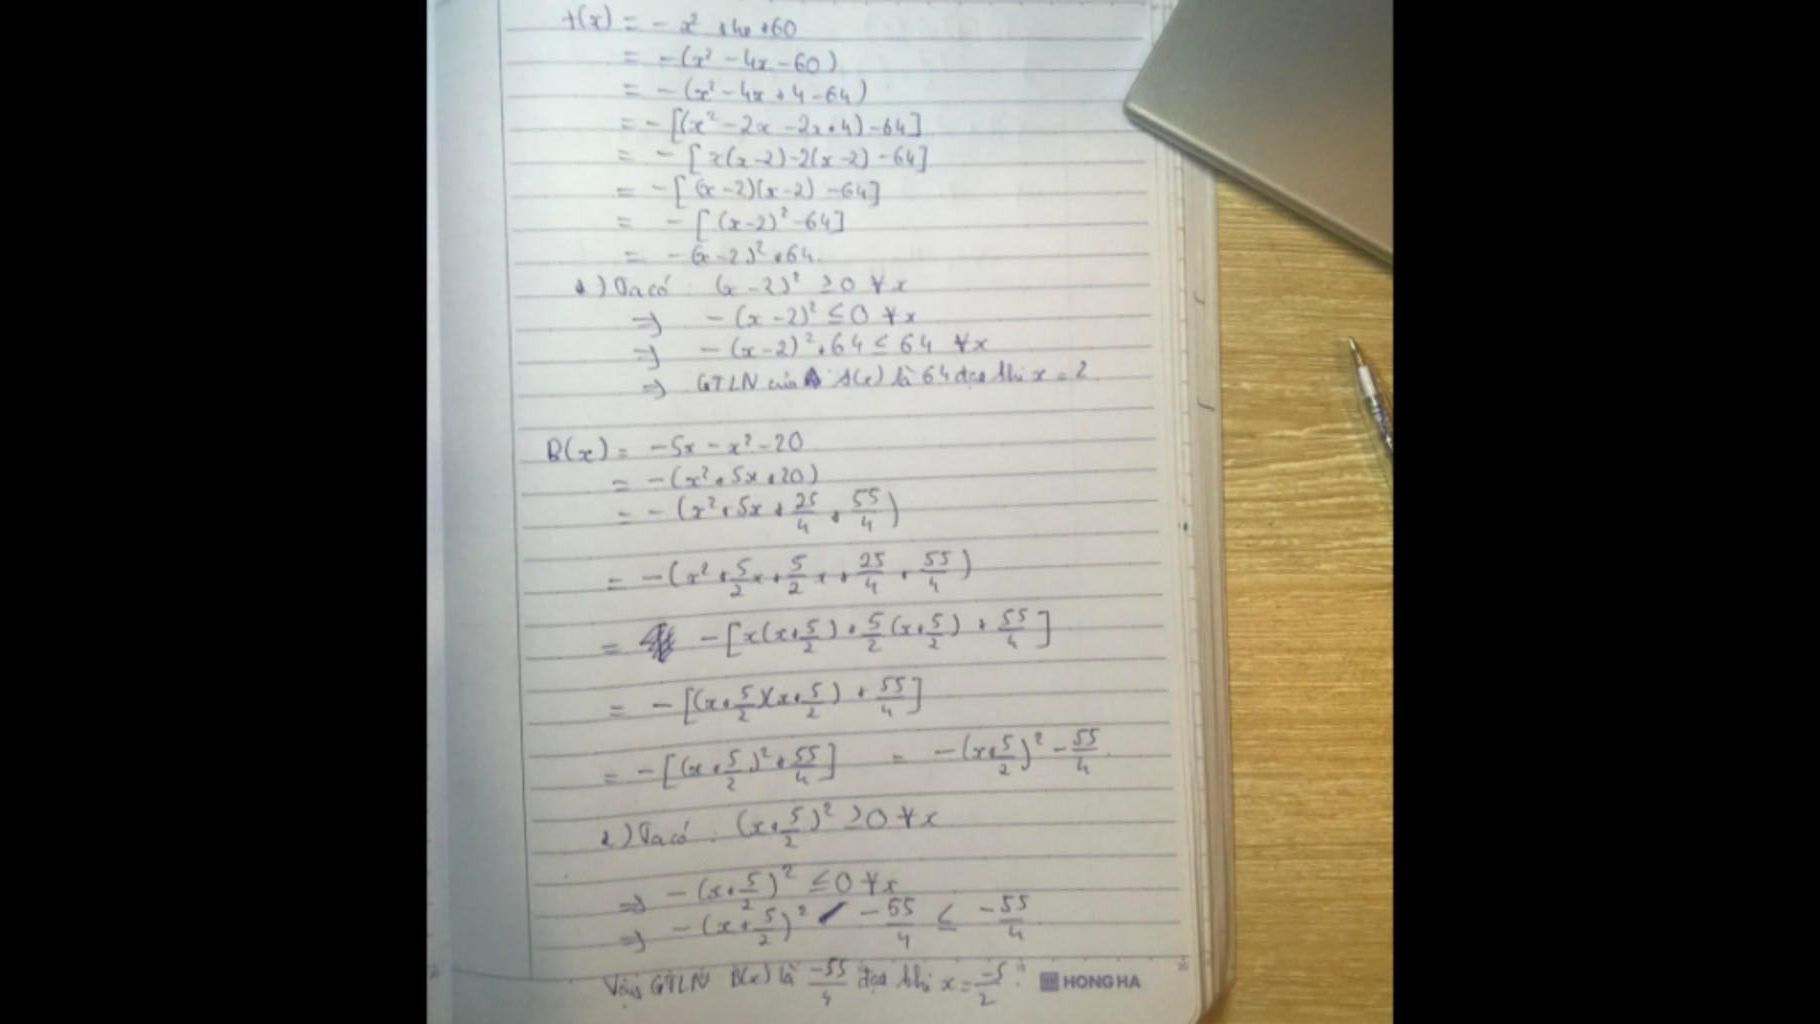 A(x) = - x² + 4x + 60
= -(x² - 4x - 60)
= -(x² - 4x + 4 - 64)
= -[(x² - 2x - 2x + 4) - 64]
= -[x(x - 2) - 2(x - 2) - 64]
= -[(x - 2)(x - 2) - 64]
= -[(x - 2)² - 64]
= -(x - 2)² + 64
+) Ta có: (x - 2)² ≥ 0 ∀ x
⇒ -(x - 2)² ≤ 0 ∀ x
⇒ -(x - 2)² + 64 ≤ 64 ∀ x
⇒ GTLN của A(x) là 64 đạt khi x = 2
B(x) = -5x - x² - 20
= -(x² + 5x + 20)
= -(x² + 5x + 25/4 + 55/4)
= -(x² + 5/2 x + 5/2 x + 25/4 + 55/4)
= -[x(x + 5/2) + 5/2(x + 5/2) + 55/4]
= -[(x + 5/2)(x + 5/2) + 55/4]
= -[(x + 5/2)² + 55/4] = -(x + 5/2)² - 55/4
+) Ta có: (x + 5/2)² ≥ 0 ∀ x
⇒ -(x + 5/2)² ≤ 0 ∀ x
⇒ -(x + 5/2)² - 55/4 ≤ -55/4
Vậy GTLN B(x) là -55/4 đạt khi x = -5/2
HONG HA